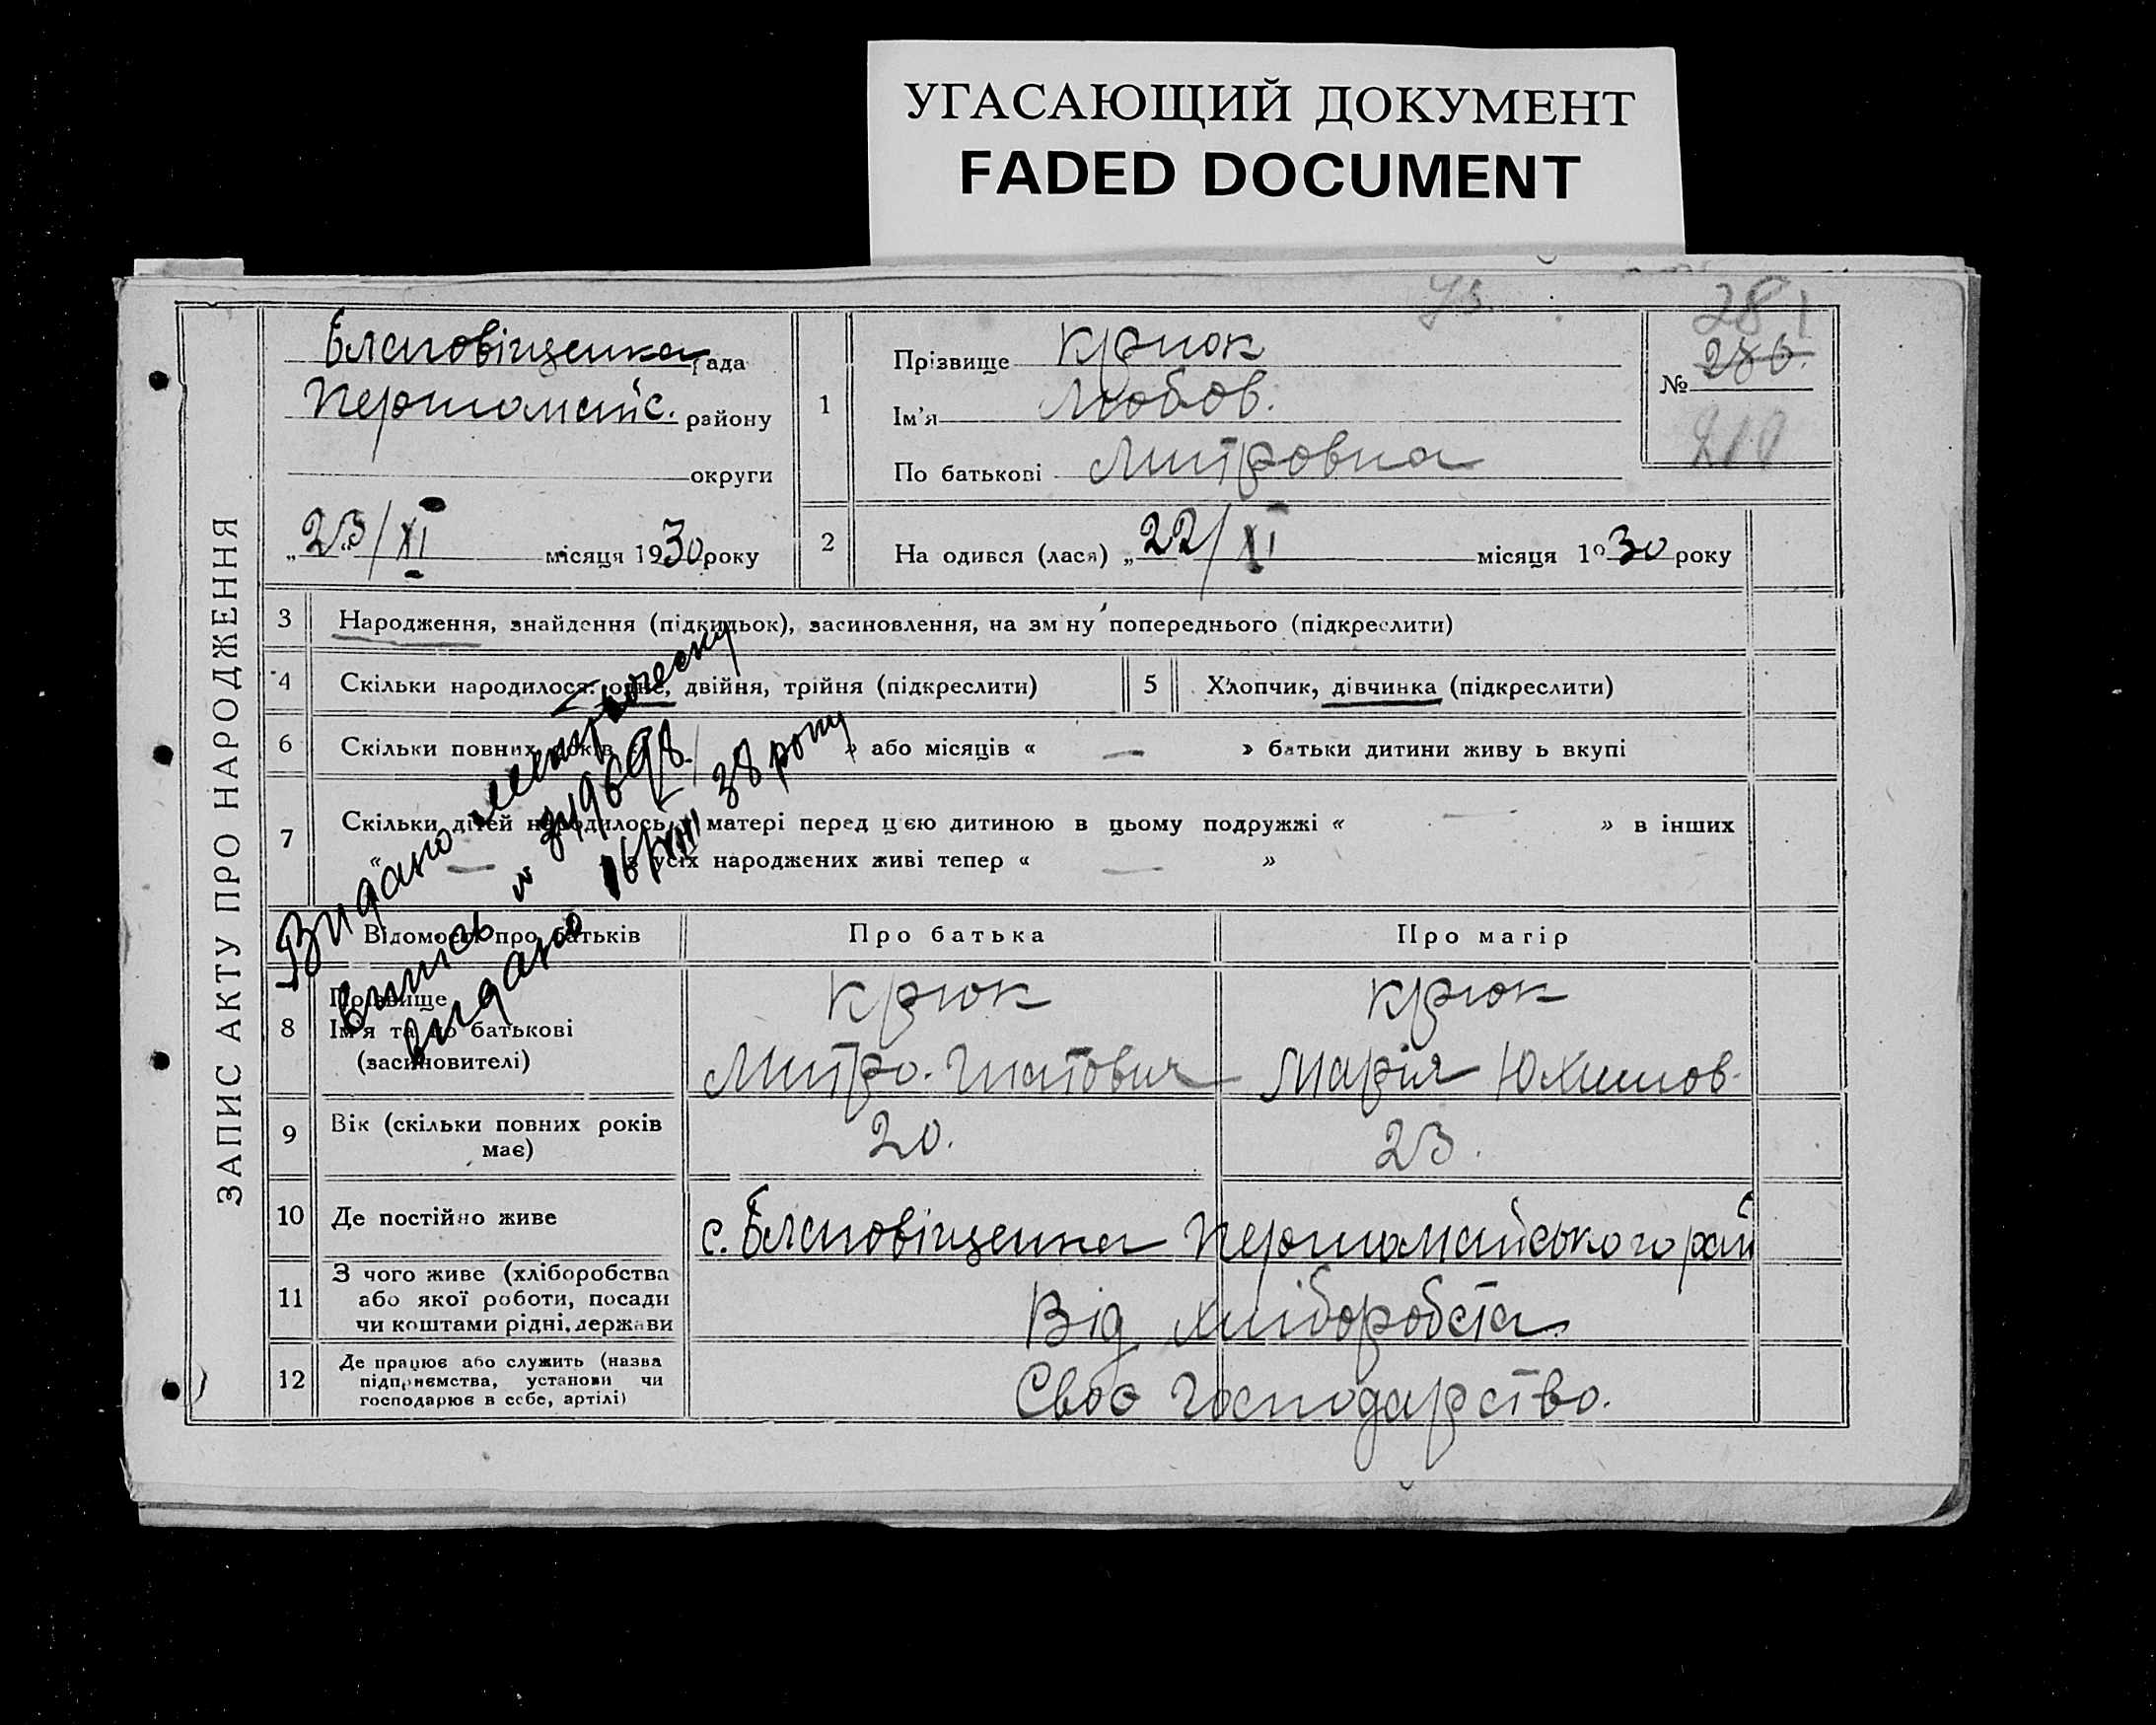 УГАСАЮЩИЙ ДОКУМЕНТ
FADED DOCUMENT
ЗАПИС АКТУ ПРО НАРОДЖЕННЯ
Благовіщенка рада
Першотравн. району
округи
„23/XI місяця 1930 року
281
№ 280.
210
1
Прізвище Крюк
Ім'я Любов.
По батькові Митровна
2
На одився (лася) „22/XI місяця 1930 року
3 Народження, знайдення (підкидьок), засиновлення, на зм ну попереднього (підкреслити)
4 Скільки народилося: одне, двійня, трійня (підкреслити)
5 Хлопчик, дівчинка (підкреслити)
6 Скільки повних років » або місяців « — » батьки дитини живу ь вкупі
7 Скільки дітей народилось у матері перед цєю дитиною в цьому подружжі « — » в інших
« — з усіх народжених живі тепер « — »
Видано
випись
видано 16/VIII 38 року
Відомості про батьків Про батька Про матір
8 Прізвище Крюк Крюк
Ім'я та по батькові Митро Марія Юхимов.
(засиновителі)
9 Вік (скільки повних років має) 20. 23.
10 Де постійно живе с. Благовіщенка
11 З чого живе (хліборобства
або якої роботи, посади
чи коштами рідні, держави
Від хліборобста.
12 Де працює або служить (назва
підприємства, установи чи
господарює в себе, артілі)
Своє господарство.